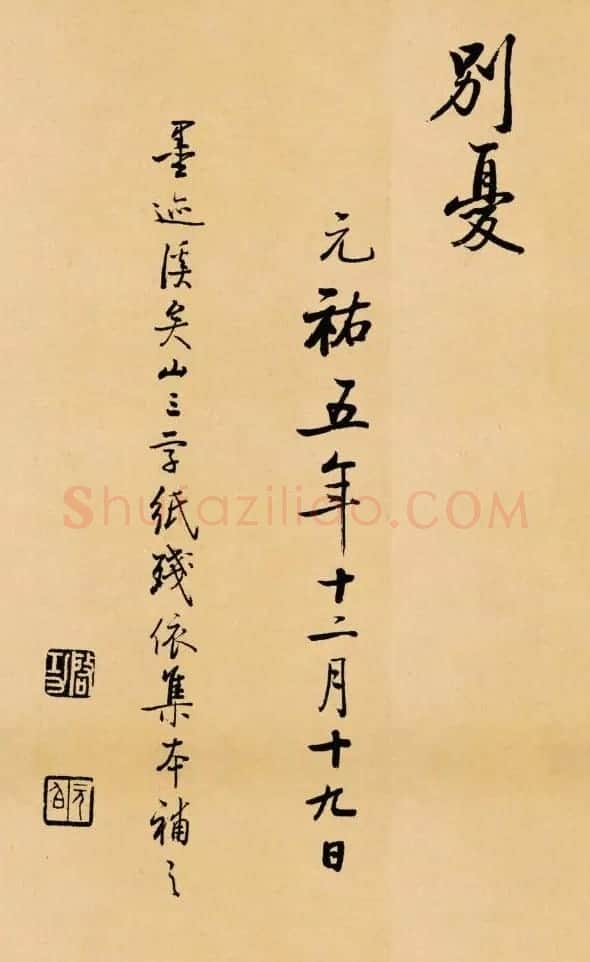 别憂
元祐五年十二月十九日
墨迹溪矣山三字紙殘依集本補之
啓功
元白
Shufaziliao.COM